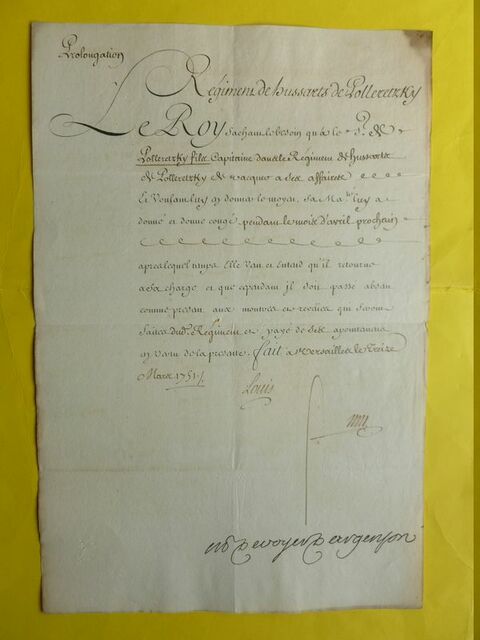 Prolongation
Regiment de hussarts de Polleretzky
Le Roy sachant le besoin qu'à le Sr. de
Polleretzky fils Capitaine dans le Regiment de hussarts
de Polleretzky de vacquer a ses affaires
Et Voulant luy en donner le moyen, Sa Ma.té luy a
donné et donne congé pendant le mois d'avril prochain
apres lequel temps Elle Veut et Entend qu'il retourne
a sa charge et que cependant il soit passé absent
comme present aux montres et reveües qui seront
faites dud. Regiment et payé de ses apointemens
en vertu de la presente. fait a Versailles le treize
Mars 1751./.
Louis
M de Voyer D'argenson